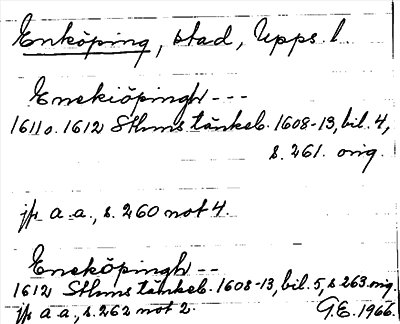 Enköping, stad, Upps. l.
Enekiöpingh ---
1611 o. 1612 Sthms tänkeb. 1608-13, bil. 4,
s. 261. orig.
jfr a.a., s. 260 not 4.
Eneköpingh --
1612 Sthms tänkeb. 1608-13, bil. 5, s 263. orig.
jfr a a., s. 262 not 2. G.E. 1966.